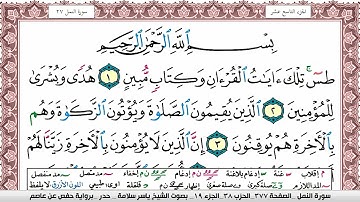 سورة النمل ٢٧
الجزء التاسع عشر
بِسْمِ ٱللَّهِ ٱلرَّحْمَٰنِ ٱلرَّحِيمِ
طسٓ تِلْكَ ءَايَٰتُ ٱلْقُرْءَانِ وَكِتَابٍ مُّبِينٍ ١ هُدًى وَبُشْرَىٰ
لِلْمُؤْمِنِينَ ٢ ٱلَّذِينَ يُقِيمُونَ ٱلصَّلَوٰةَ وَيُؤْتُونَ ٱلزَّكَوٰةَ وَهُم
بِٱلْءَاخِرَةِ هُمْ يُوقِنُونَ ٣ إِنَّ ٱلَّذِينَ لَا يُؤْمِنُونَ بِٱلْءَاخِرَةِ زَيَّنَّا لَهُمْ
سورة النمل - الصفحة ٣٧٧ - الحزب ٣٨ - الجزء ١٩ - بصوت الشيخ ياسر سلامة - حدر - برواية حفص عن عاصم